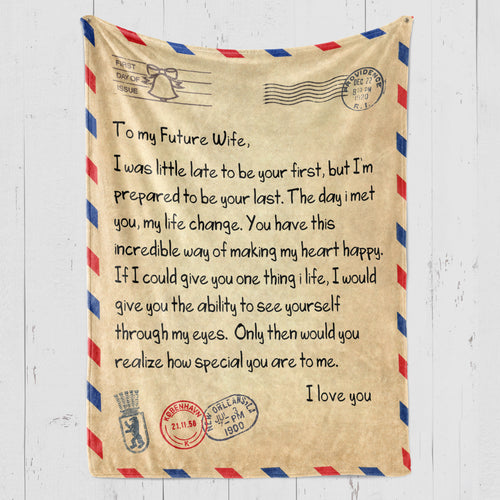 FIRST
DAY OF
ISSUE
PROVIDENCE
DEC 27
8:30 PM
1920
R.I.
To my Future Wife,
I was little late to be your first, but I'm
prepared to be your last. The day i met
you, my life change. You have this
incredible way of making my heart happy.
If I could give you one thing i life, I would
give you the ability to see yourself
through my eyes. Only then would you
realize how special you are to me.
I love you
KØBENHAVN
21.11.58
K
NEW ORLEANS, LA
JUL 3
-PM
1900